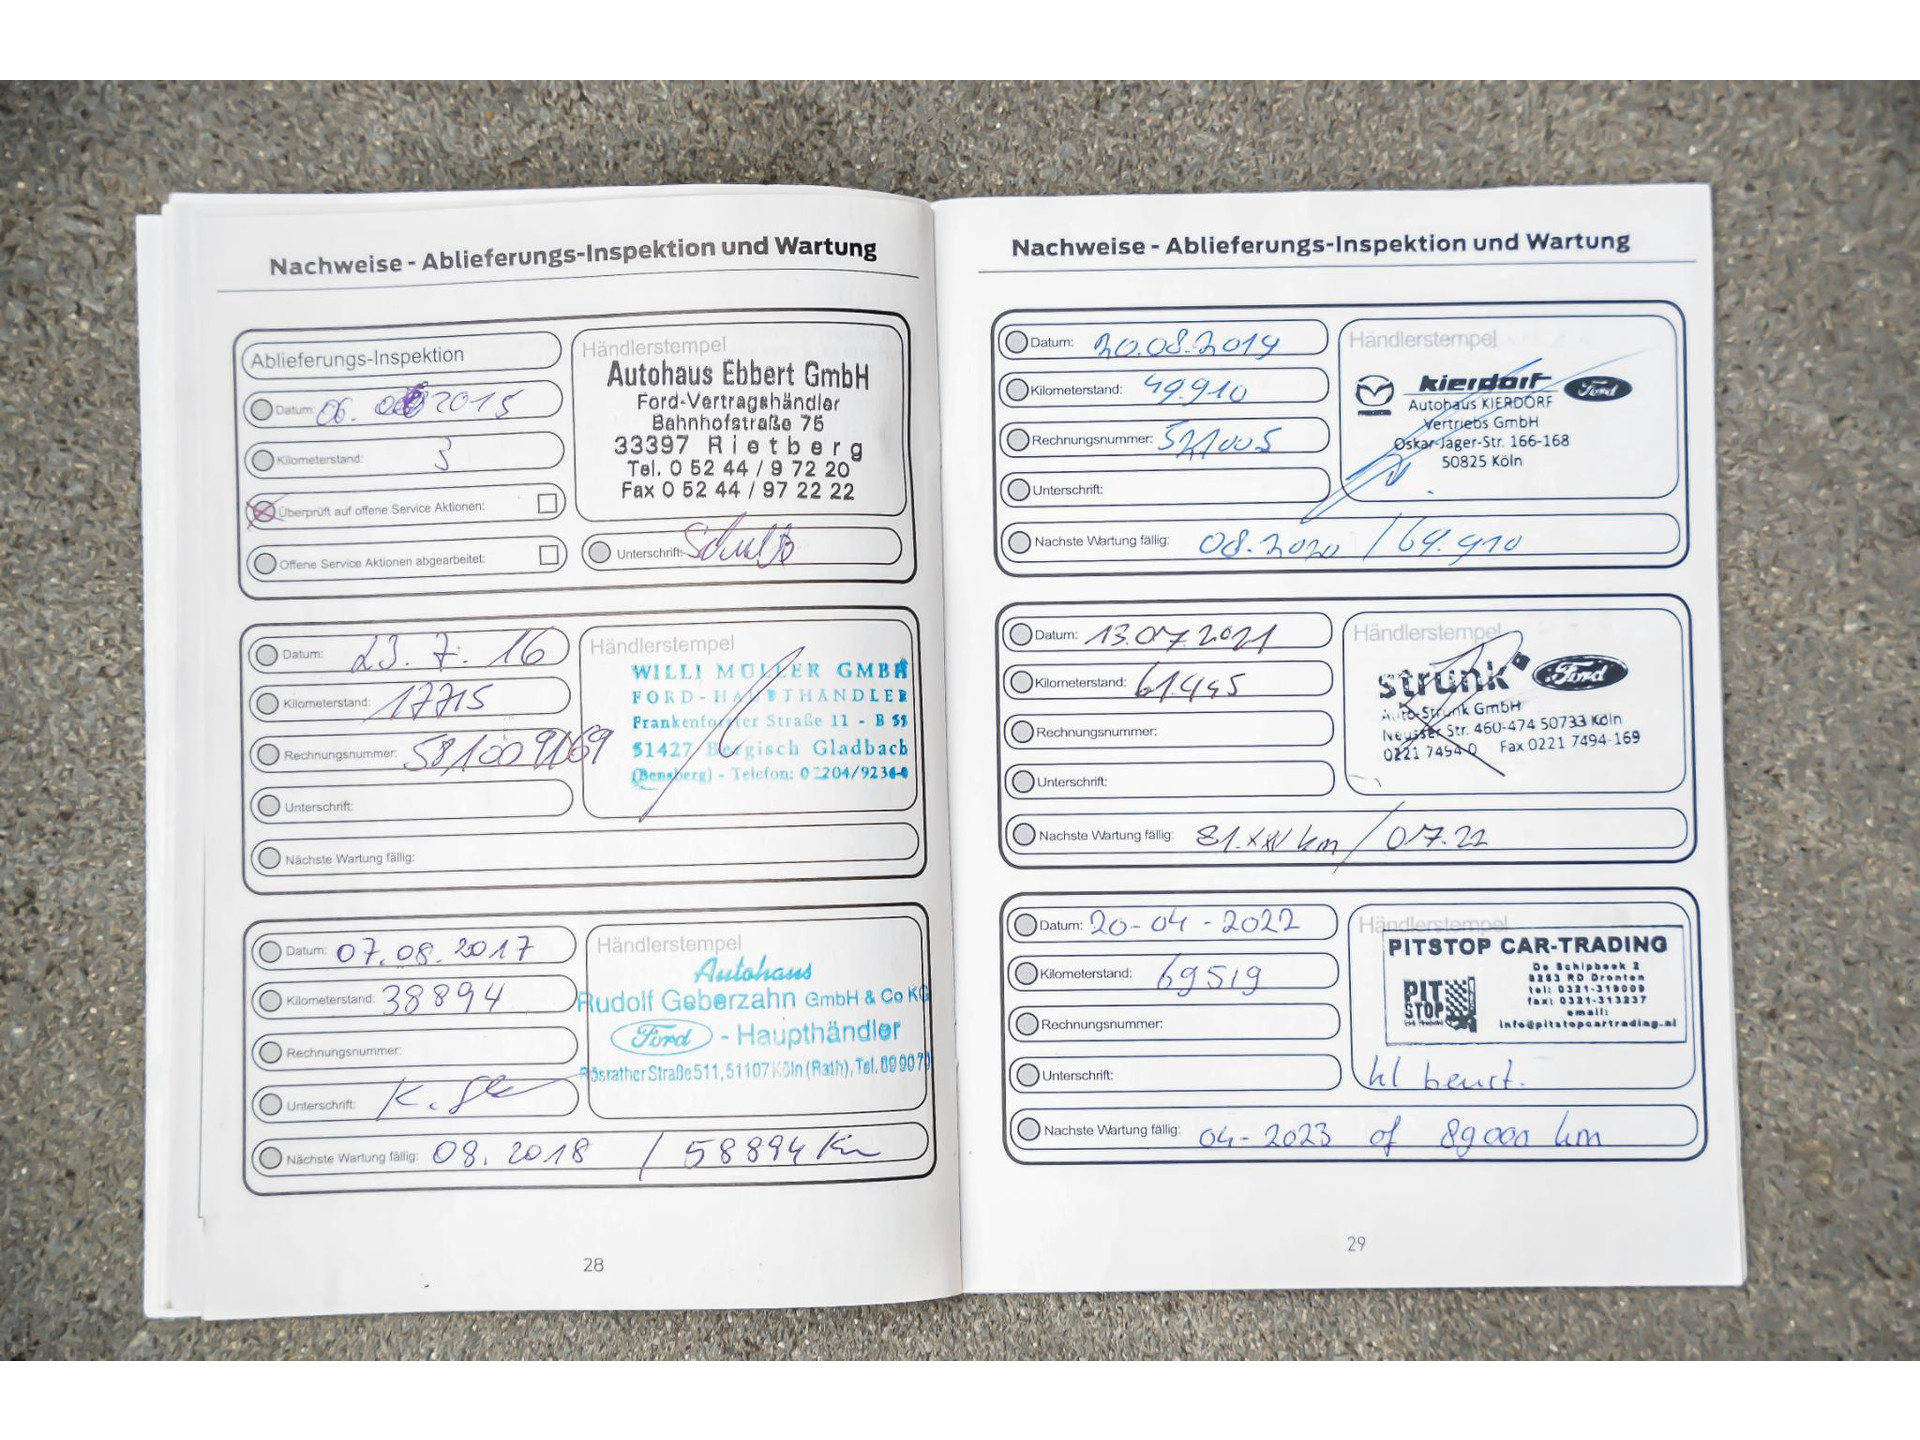 Nachweise - Ablieferungs-Inspektion und Wartung
Ablieferungs-Inspektion
Datum: 06. 2015
Kilometerstand: 3
Überprüft auf offene Service Aktionen:
Offene Service Aktionen abgearbeitet:
Händlerstempel
Autohaus Ebbert GmbH
Ford-Vertragshändler
Bahnhofstraße 76
33397 Rietberg
Tel. 0 52 44 / 9 72 20
Fax 0 52 44 / 97 22 22
Unterschrift:
Datum: 23. 7. 16
Kilometerstand: 17715
Rechnungsnummer:
Unterschrift:
Nächste Wartung fällig:
Händlerstempel
WILLI MÜLLER GMBH
FORD-HAUPTHÄNDLER
Frankenforster Straße 11 - B 55
51427 Bergisch Gladbach
(Bensberg) - Telefon: 02204/9236-0
Datum: 07.08.2017
Kilometerstand: 38894
Rechnungsnummer:
Unterschrift:
Nächste Wartung fällig: 08.2018 / 58894 Km
Händlerstempel
Autohaus
Rudolf Geberzahn GmbH & Co KG
Ford - Haupthändler
Rösrather Straße 511, 51107 Köln (Rath), Tel.
28
Nachweise - Ablieferungs-Inspektion und Wartung
Datum: 20.08.2019
Kilometerstand: 49.910
Rechnungsnummer: 521005
Unterschrift:
Nächste Wartung fällig: 08.2020 / 69.910
Händlerstempel
mazda kierdorf Ford
Autohaus KIERDORF
Vertriebs GmbH
Oskar-Jäger-Str. 166-168
50825 Köln
Datum: 13.07.2021
Kilometerstand: 61.445
Rechnungsnummer:
Unterschrift:
Nächste Wartung fällig: 81.xxx km / 07.22
Händlerstempel
strunk Ford
Auto-Strunk GmbH
Neusser Str. 460-474 50733 Köln
0221 7494-0 Fax 0221 7494-169
Datum: 20-04-2022
Kilometerstand: 69519
Rechnungsnummer:
Unterschrift:
Nächste Wartung fällig: 04-2023 of 89000 km
Händlerstempel
PITSTOP CAR-TRADING
PIT STOP
De Schipbeek 2
8253 RD Dronten
tel: 0321-319009
fax: 0321-313237
email:
info@pitstopcartrading.nl
kl beurt.
29